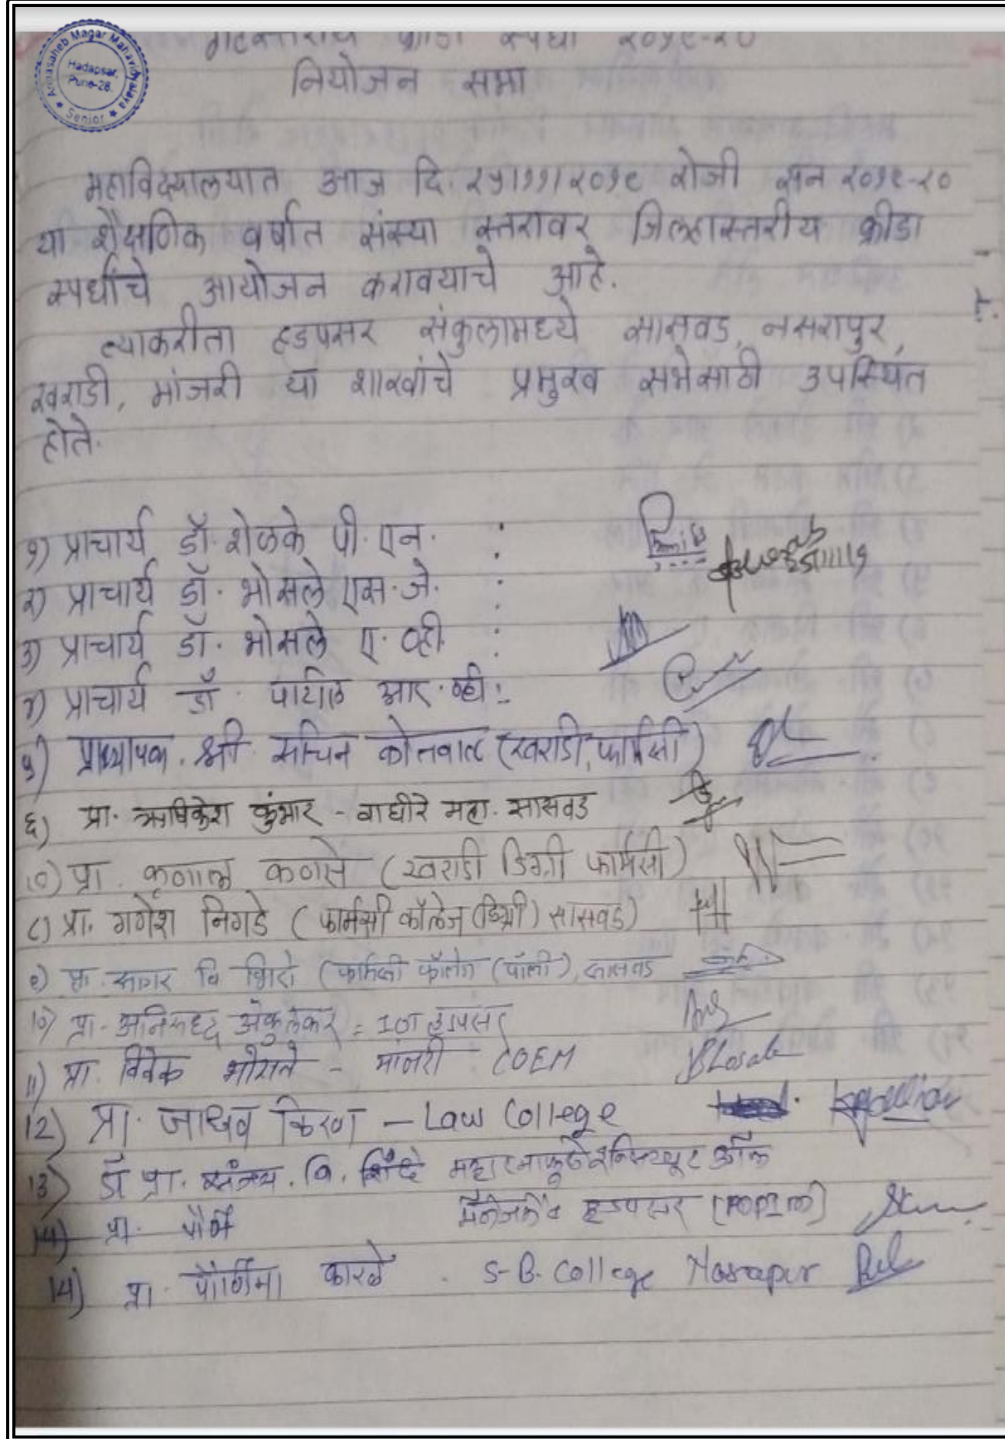 Annasaheb Magar Mahavidyalaya
Hadapsar,
Pune-28.
Senior
क्रीडा स्पर्धा २०१९-२०
नियोजन सभा
महाविद्यालयात आज दि. २५/११/२०१९ रोजी सन २०१९-२०
या शैक्षणिक वर्षात संस्था स्तरावर जिल्हास्तरीय क्रीडा
स्पर्धांचे आयोजन करावयाचे आहे.
त्याकरीता हडपसर संकुलामध्ये सासवड, नसरापुर,
खराडी, मांजरी या शाखांचे प्रमुख सभेसाठी उपस्थित
होते.
१) प्राचार्य डॉ. शेळके पी. एन. :
२) प्राचार्य डॉ. भोसले एस. जे. :
३) प्राचार्य डॉ. भोसले ए. व्ही. :
४) प्राचार्य डॉ. पाटील आर. व्ही :
५) प्राध्यापक. श्री. सचिन कोतवाल (खराडी, फार्मसी)
६) प्रा. ऋषिकेश कुंभार - वाघीरे महा. सासवड
७) प्रा. कृणाल कणसे (खराडी डिग्री फार्मसी)
८) प्रा. गणेश निगडे (फार्मसी कॉलेज (डिग्री) सासवड)
९) प्रा. सागर वि (फार्मसी कॉलेज (पॉली), सासवड
१०) प्रा. अनिरुद्ध हडपसर
11) प्रा. विवेक भोसले - मांजरी COEM
12) प्रा. जाधव किरण - Law College
13) डॉ प्रा. वि. शिंदे महात्मा फुले इन्स्टिट्यूट ऑफ
14) प्रा. पौर्णि मॅनेजमेंट हडपसर
14) प्रा. पौर्णिमा कारळे. S-B. College Nasrapur